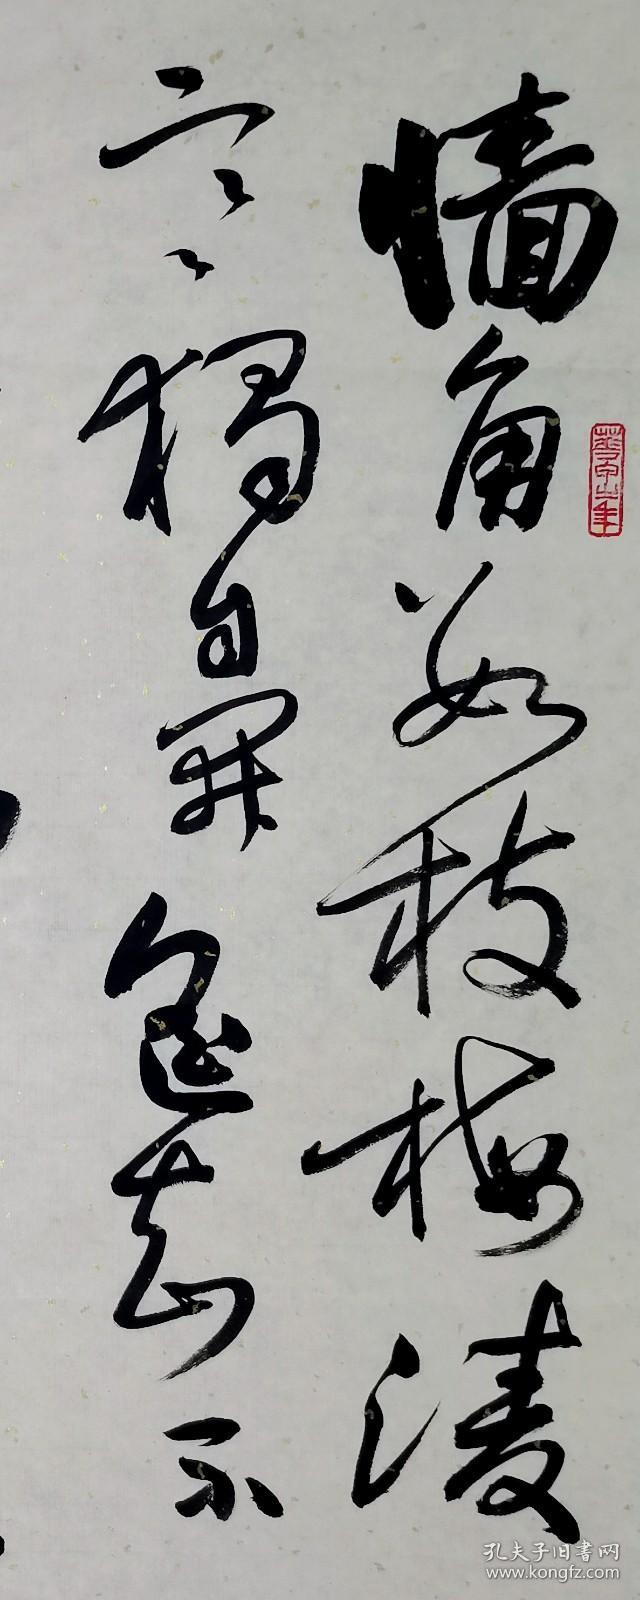 墙角数枝梅凌
寒独自开遥知不
孔夫子旧书网
www.kongfz.com